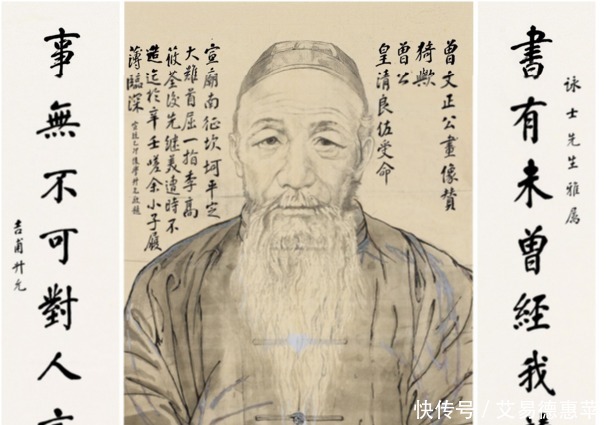 詠士先生雅屬
書有未曾經我
曾文正公畫像贊
猗歟
曾公
皇清良伍受命
宣廟南征坎坷平定
大難首屈一指李高
筱荃後先継美遭時不
造迄於辛壬嗟余小子履
薄臨深
事無不可對人
吉甫升允
快传号/艾易德惠苹